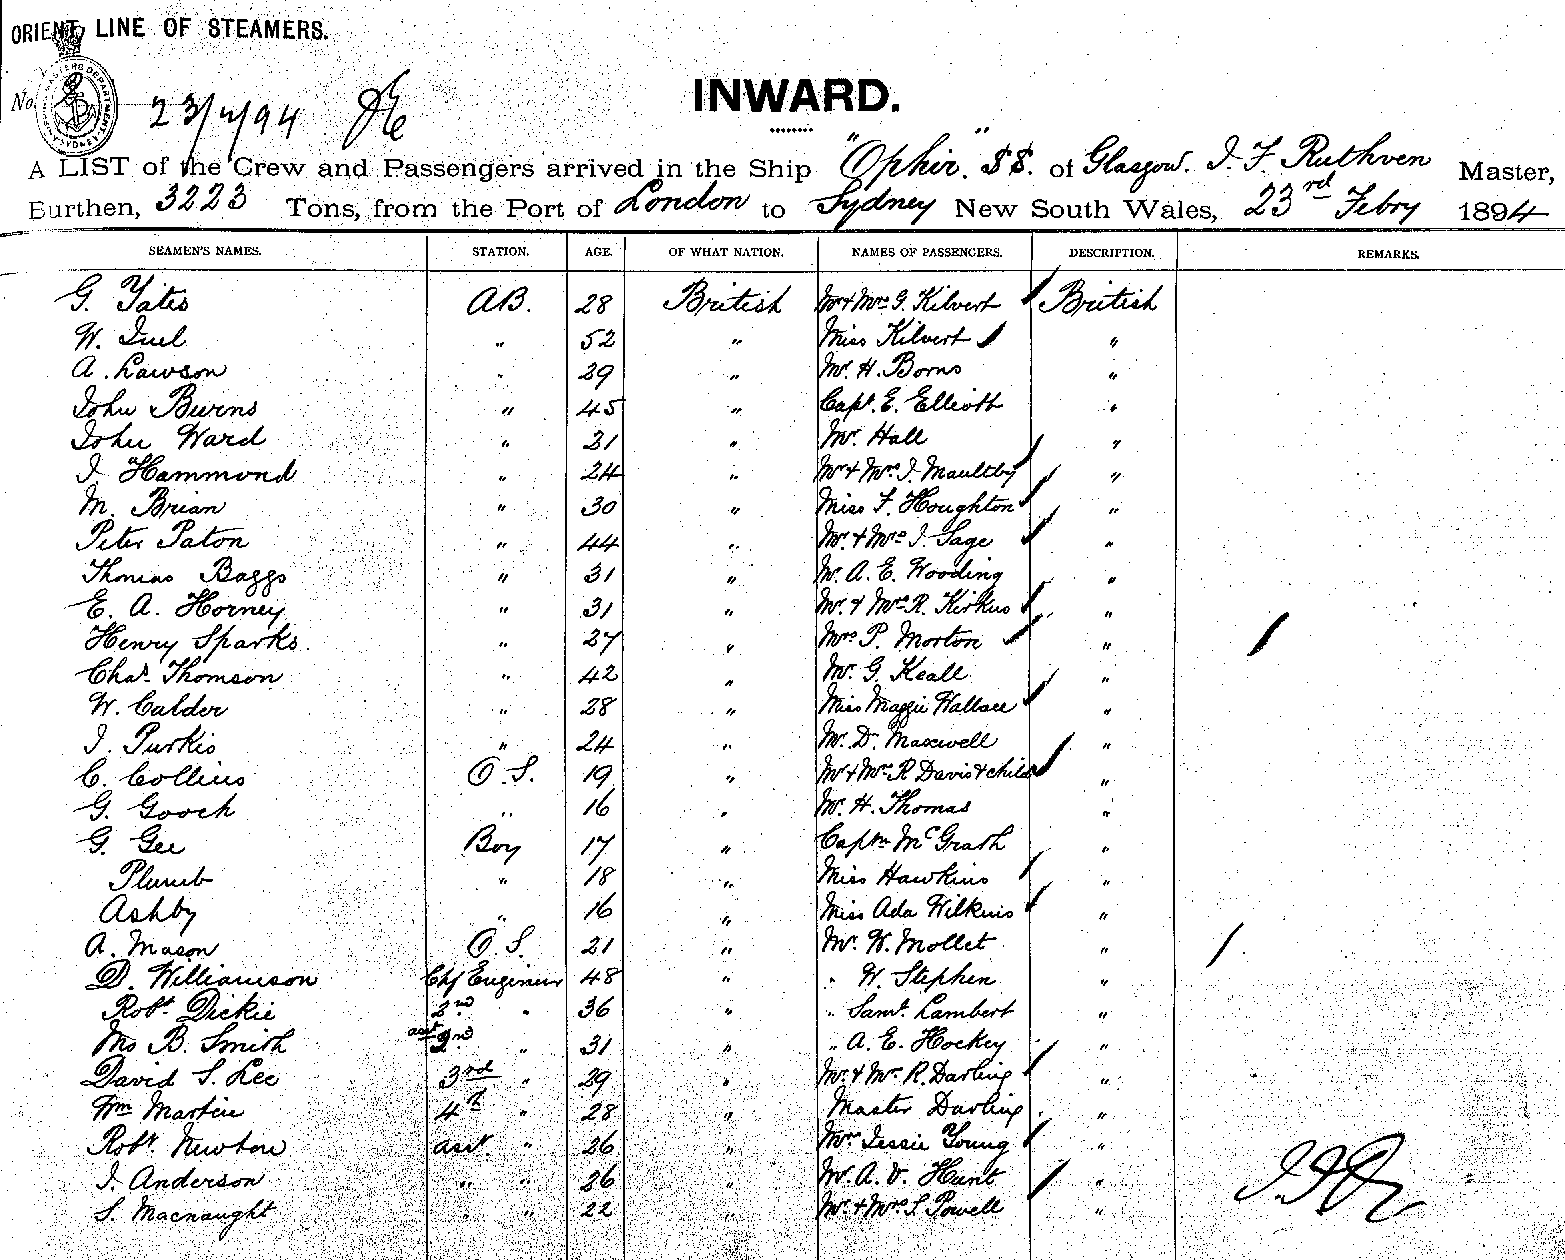 ORIENT LINE OF STEAMERS.
No. 23/2/94
INWARD.
A LIST of the Crew and Passengers arrived in the Ship "Ophir" S.S. of Glasgow. J. F. Ruthven Master,
Burthen, 3223 Tons, from the Port of London to Sydney New South Wales, 23rd Febry 1894
SEAMEN'S NAMES. STATION. AGE. OF WHAT NATION. NAMES OF PASSENGERS. DESCRIPTION. REMARKS.
G. Yates A.B. 28 British Mr & Mrs G. Kilvert British
W. Juel " 52 " Miss Kilvert "
A. Lawson " 29 " Mr. H. Borns "
John Burns " 45 " Capt. E. Elliott "
John Ward " 31 " Mr. Hall "
J. Hammond " 24 " Mr & Mrs J. Maultby "
M. Brian " 30 " Miss F. Houghton "
Peter Paton " 44 " Mr. & Mrs J. Sage "
Thomas Baggs " 31 " Mr. A. E. Wooding "
E. A. Horney " 31 " Mr. & Mrs R. Kirkus "
Henry Sparks " 27 " Mrs P. Morton "
Chas. Thomson " 42 " Mr. G. Keall "
W. Calder " 28 " Miss Maggie Wallace "
J. Purkis " 24 " Mr. D. Maxwell "
C. Collins O.S. 19 " Mr & Mrs R Davis & child "
G. Gooch " 16 " Mr. H. Thomas "
G. Gee Boy 17 " Captn McGrath "
Plumb " 18 " Miss Hawkins "
Ashby " 16 " Miss Ada Wilkins "
A. Mason O.S. 21 " Mr. W. Mollet "
D. Williamson Chf Engineer 48 " " W. Stephen "
Robt. Dickie 2nd " 36 " " Saml. Lambert "
Ms B. Smith asst 2nd " 31 " " A. E. Hockey "
David S. Lee 3rd " 29 " Mr. & Mrs R. Darling "
Wm Martin 4th " 28 " Master Darling "
Robt. Newton asst. " 26 " Mrs Jessie Young "
J. Anderson " " 26 " Mr. A. V. Hunt "
S. Macnaught " " 22 " Mr. & Mrs S. Powell "